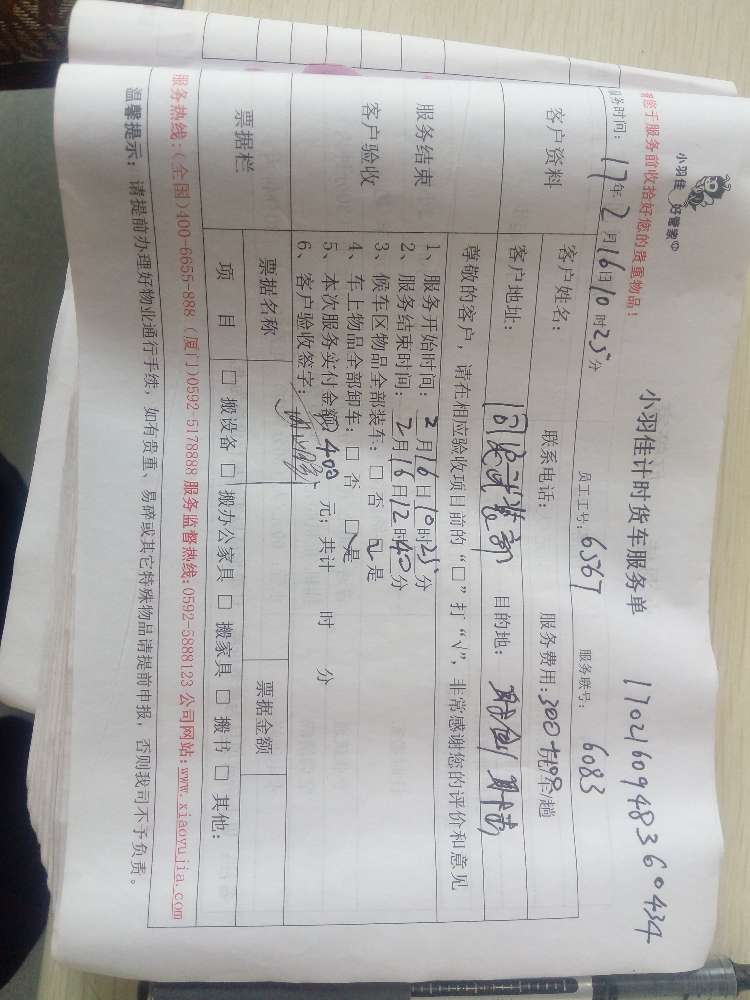 小羽佳 好管家
请您于服务前收拾好您的贵重物品！
小羽佳计时货车服务单
1702160948360434
服务时间： 17年 2月 16日 10时 25分 员工工号：6567 服务联号：6083
客户资料
客户姓名： 联系电话： 服务费用：300+ 元/车/趟
客户地址： 目的地：
尊敬的客户，请在相应验收项目前的“□”打“√”，非常感谢您的评价和意见
服务结束
客户验收
1、服务开始时间： 2月 16日 10时 25分
2、服务结束时间： 2月 16日 12时 40分
3、候车区物品全部装车：□ 否 ☑ 是
4、车上物品全部卸车：□ 否 ☑ 是
5、本次服务实付金额：400 元；共计 时 分
6、客户验收签字：
票据栏
票据名称 票据金额
项 目 □ 搬设备 □ 搬办公家具 □ 搬家具 □ 搬书 □ 其他：
服务热线：(全国)400-6655-888 (厦门)0592-5178888 服务监督热线：0592-5888123 公司网站：www.xiaoyujia.com
温馨提示：请提前办理好物业通行手续，如有贵重、易碎或其它特殊物品请提前申报，否则我司不予负责。